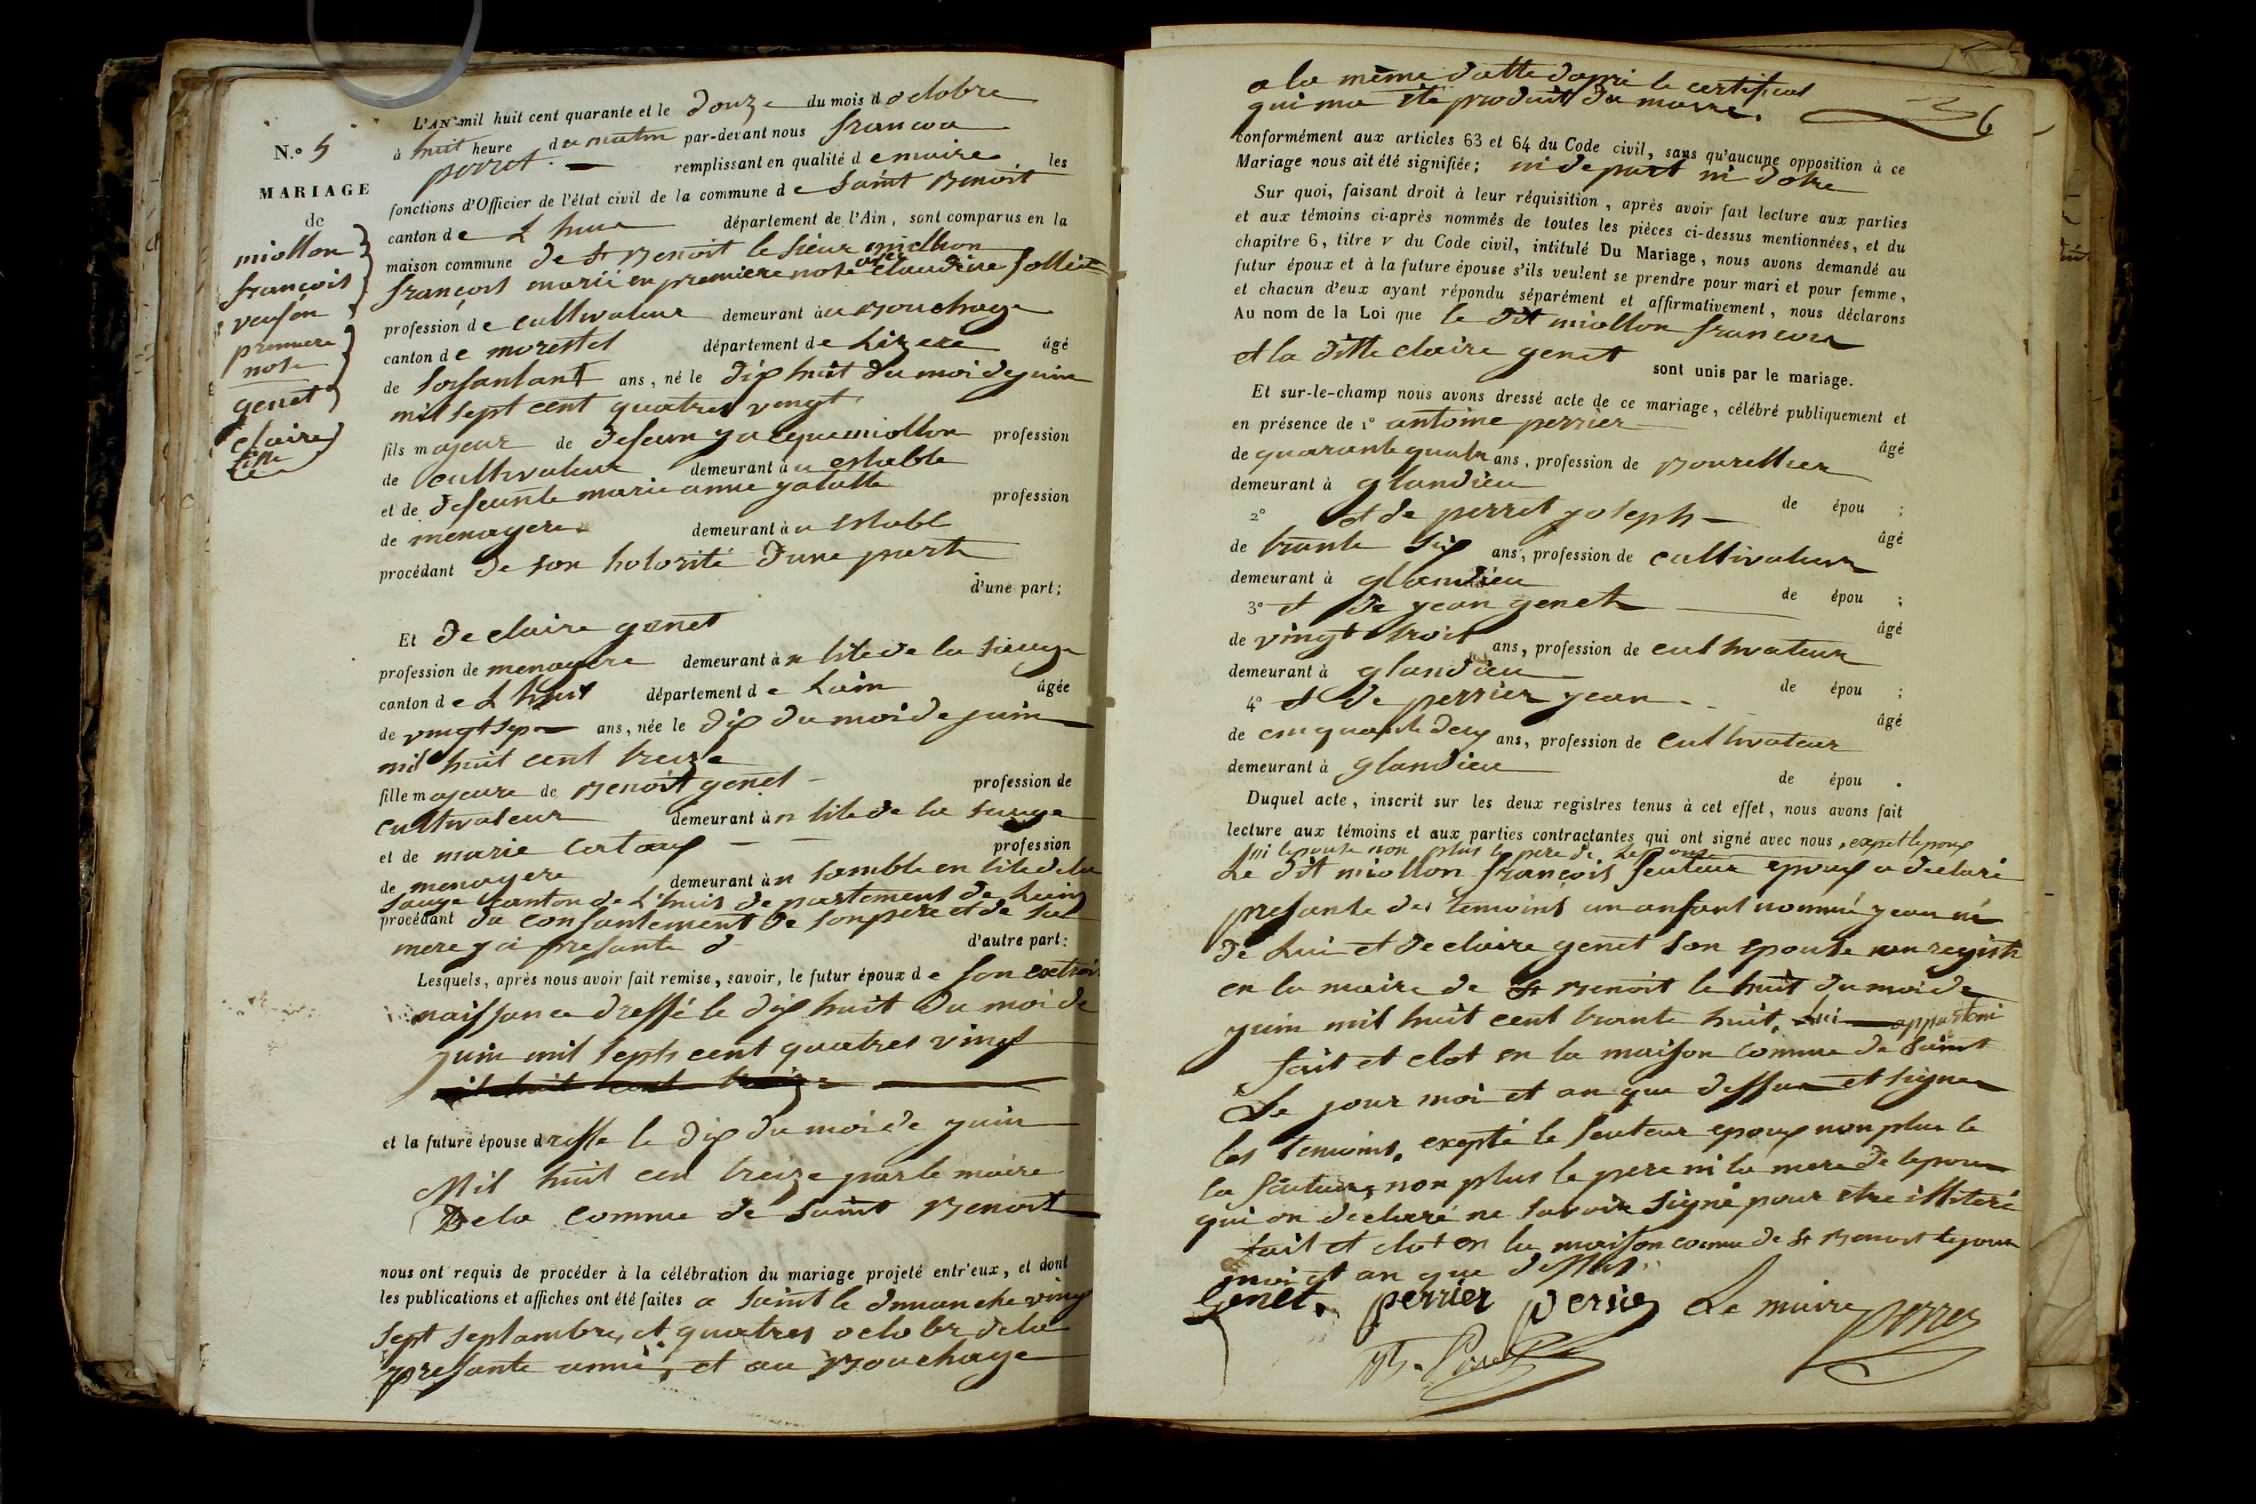 N.º 5
MARIAGE
de
miollon
françois
veuf en
premiere
nose
genet
claire
fille
L'AN mil huit cent quarante et le douze du mois d octobre
à huit heure du matin par-devant nous francoa
perret. remplissant en qualité de maire les
fonctions d'Officier de l'état civil de la commune de Saint Benoit
canton de L'huis département de l'Ain, sont comparus en la
maison commune de St Benoit le sieur miollon
françois marié en premiere nose avec claudine
profession de cultivateur demeurant au Bouchage
canton de morestel département de Lizere âgé
de soisantant ans, né le dix huit du moi de juin
mil sept cent quatres vingt
fils majeur de defeun jacque miollon profession
de cultivateur demeurant a establle
et de defeunte marie anne profession
de menagere demeurant a establ
procédant de son hotorité dune part
d'une part;
Et de claire genet
profession de menagere demeurant à n lile de la sauge
canton de L'huis département de Lain âgée
de vingt sep ans, née le dix du moi de juin
mil huit cent treize
fille majeure de Benoit genet profession de
cultivateur demeurant à n lile de la sauge
et de marie profession
de menagere demeurant à n samble en lile de la
sauge canton de L'huis departement de Lain
procédant du consantement de son pere et de sa
mere y ci presante d d'autre part:
Lesquels, après nous avoir fait remise, savoir, le futur époux de son
naissance dressé le dix huit du moi de
juin mil septs cent quatres vingt
et la future épouse dresse le dix du moi de juin
Mil huit cen treize par le maire
De la commue de saint Benoit
nous ont requis de procéder à la célébration du mariage projeté entr'eux, et dont
les publications et affiches ont été faites a saint le dimanche ving
sept septambre, et quatres octobre de la
presante anné, et au Bouchage
6
a la même datte dapré le certificat
qui ma été produit du maire.
conformément aux articles 63 et 64 du Code civil, sans qu'aucune opposition à ce
Mariage nous ait été signifiée; ni de part ni dotre
Sur quoi, faisant droit à leur réquisition, après avoir fait lecture aux parties
et aux témoins ci-après nommés de toutes les pièces ci-dessus mentionnées, et du
chapitre 6, titre v du Code civil, intitulé Du Mariage, nous avons demandé au
futur époux et à la future épouse s'ils veulent se prendre pour mari et pour femme,
et chacun d'eux ayant répondu séparément et affirmativement, nous déclarons
Au nom de la Loi que le dit miollon francois
et la ditte claire genet
sont unis par le mariage.
Et sur-le-champ nous avons dressé acte de ce mariage, célébré publiquement et
en présence de 1º antoine perrier âgé
de quarante quatr ans, profession de Bourellier
demeurant à glandieu de épou ;
2º et de perret joseph âgé
de trante six ans, profession de cultivateur
demeurant à glandieu de épou ;
3º et de jean genet âgé
de vingt trois ans, profession de cultivateur
demeurant à glandieu de épou ;
4º et de perrier jean âgé
de cinquante deux ans, profession de cultivateur
demeurant à glandieu de épou .
Duquel acte, inscrit sur les deux registres tenus à cet effet, nous avons fait
lecture aux témoins et aux parties contractantes qui ont signé avec nous, expet lepoux
ni lepouse non plus le pere de
Le dit miollon françois feuteur epoux a declaré
presante des temoins un anfant nommé jean né
de Lui et de claire genet son epouse
en la maire de St Benoit le huit du moi de
juin mil huit cent trante huit, Lui
fait et clot en la maison commue de saint
Le jour moi et an que dessus et signer
les temoins, exepté le feuteur epoux non plus le
la feuture, non plus le pere ni la mere de
qui on declaré ne savoir signé pour etre
fait et clot en la maison comue de St Benoit lejour
moi et an que dessus.
Genet. perrier Le maire perret